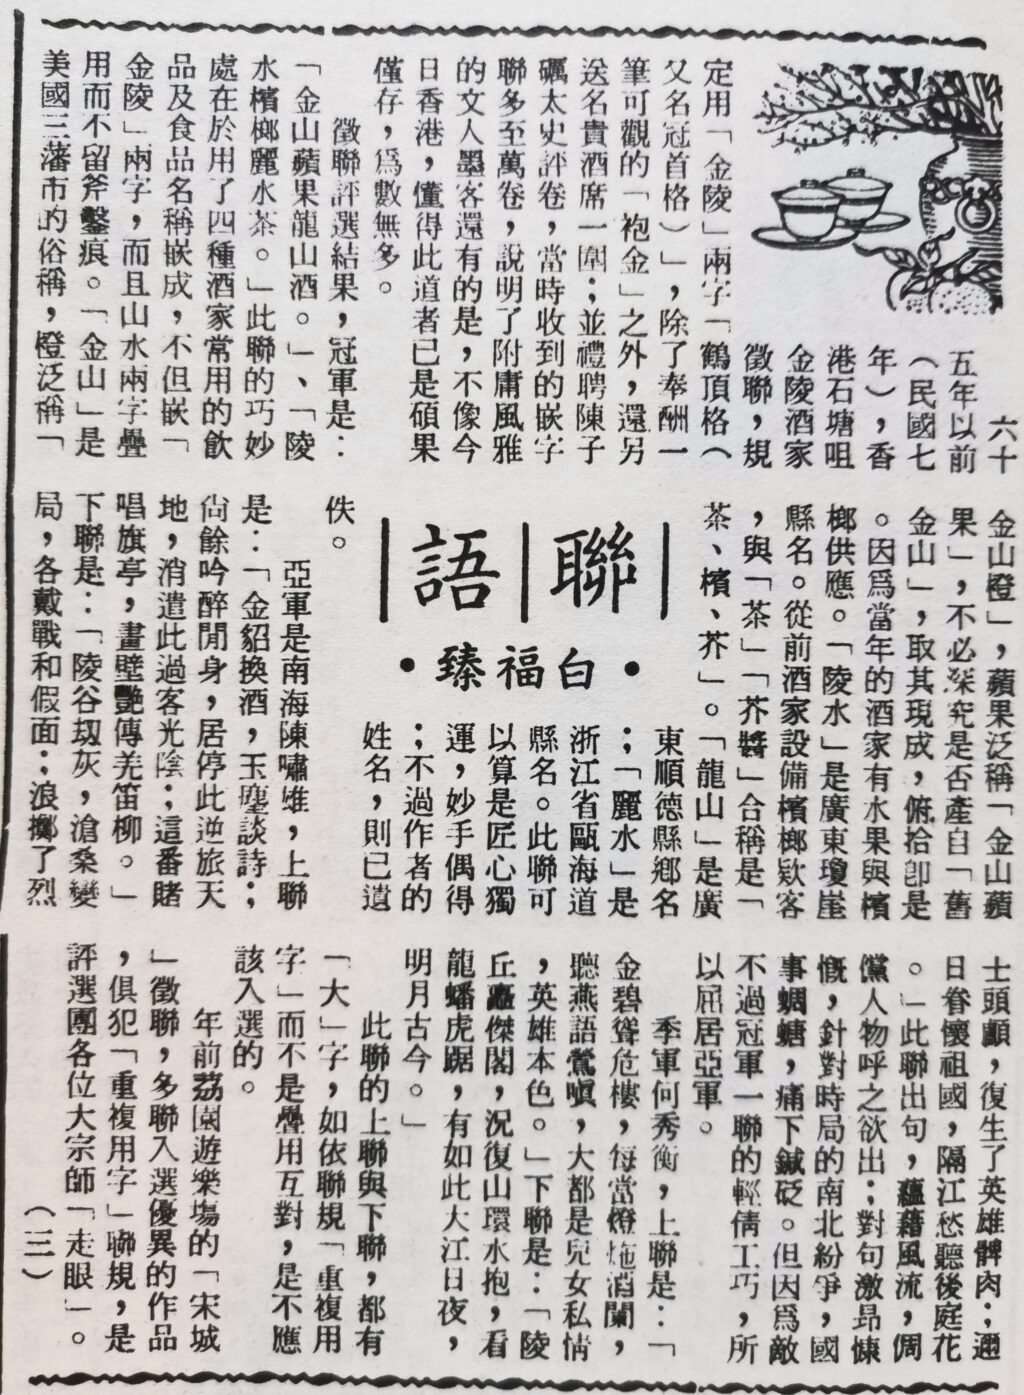 聯語
•白福臻•
六十
五年以前
（民國七
年），香
港石塘咀
金陵酒家
徵聯，規
定用「金陵」兩字「鶴頂格（
又名冠首格）」，除了奉酬一
筆可觀的「袍金」之外，還另
送名貴酒席一圍；並禮聘陳子
礪太史評卷，當時收到的嵌字
聯多至萬卷，說明了附庸風雅
的文人墨客還有的是，不像今
日香港，懂得此道者已是碩果
僅存，爲數無多。
徵聯評選結果，冠軍是：
「金山蘋果龍山酒。」、「陵
水檳榔麗水茶。」此聯的巧妙
處在於用了四種酒家常用的飲
品及食品名稱嵌成，不但嵌「
金陵」兩字，而且山水兩字疊
用而不留斧鑿痕。「金山」是
美國三藩市的俗稱，橙泛稱「
金山橙」，蘋果泛稱「金山蘋
果」，不必深究是否產自「舊
金山」，取其現成，俯拾卽是
。因爲當年的酒家有水果與檳
榔供應。「陵水」是廣東瓊崖
縣名。從前酒家設備檳榔欵客
，與「茶」「芥醬」合稱是「
茶、檳、芥」。「龍山」是廣
東順德縣鄉名
；「麗水」是
浙江省甌海道
縣名。此聯可
以算是匠心獨
運，妙手偶得
；不過作者的
姓名，則已遺
佚。
亞軍是南海陳嘯雄，上聯
是：「金貂換酒，玉麈談詩；
尙餘吟醉閒身，居停此逆旅天
地，消遣此過客光陰；這番賭
唱旗亭，畫壁艷傳羌笛柳。」
下聯是：「陵谷刼灰，滄桑變
局，各戴戰和假面；浪擲了烈
士頭顱，復生了英雄髀肉；邇
日眷懷祖國，隔江愁聽後庭花
。」此聯出句，蘊藉風流，倜
儻人物呼之欲出；對句激昂慷
慨，針對時局的南北紛爭，國
事蜩螗，痛下鍼砭。但因爲敵
不過冠軍一聯的輕倩工巧，所
以屈居亞軍。
季軍何秀衡，上聯是：「
金碧聳危樓，每當燈灺酒闌，
聽燕語鶯嗔，大都是兒女私情
，英雄本色。」下聯是：「陵
丘矗傑閣，況復山環水抱，看
龍蟠虎踞，有如此大江日夜，
明月古今。」
此聯的上聯與下聯，都有
「大」字，如依聯規「重複用
字」而不是疊用互對，是不應
該入選的。
年前荔園遊樂塲的「宋城
」徵聯，多聯入選優異的作品
，俱犯「重複用字」聯規，是
評選團各位大宗師「走眼」。
（三）